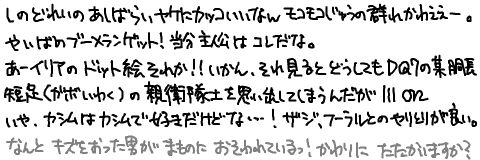 しのどれいの あしばらい ヤケにカッコいいなw モコモコじゅうの群れかわええー。
やいばのブーメランゲット! 当分 主人公は コレだな。
あーイリアの ドット絵 それか!! いかん、それ見ると どうしても DQ7の某胴長
短足(ガボいわく)の 親衛隊士を思い出してしまうんだが lll orz
いや、カシムは カシムで 好きだけどな…! ザジ、フーラルとのやりとりが良い。
なんと キズをおった男が まものに おそわれているっ! かわりに たたかいますか?